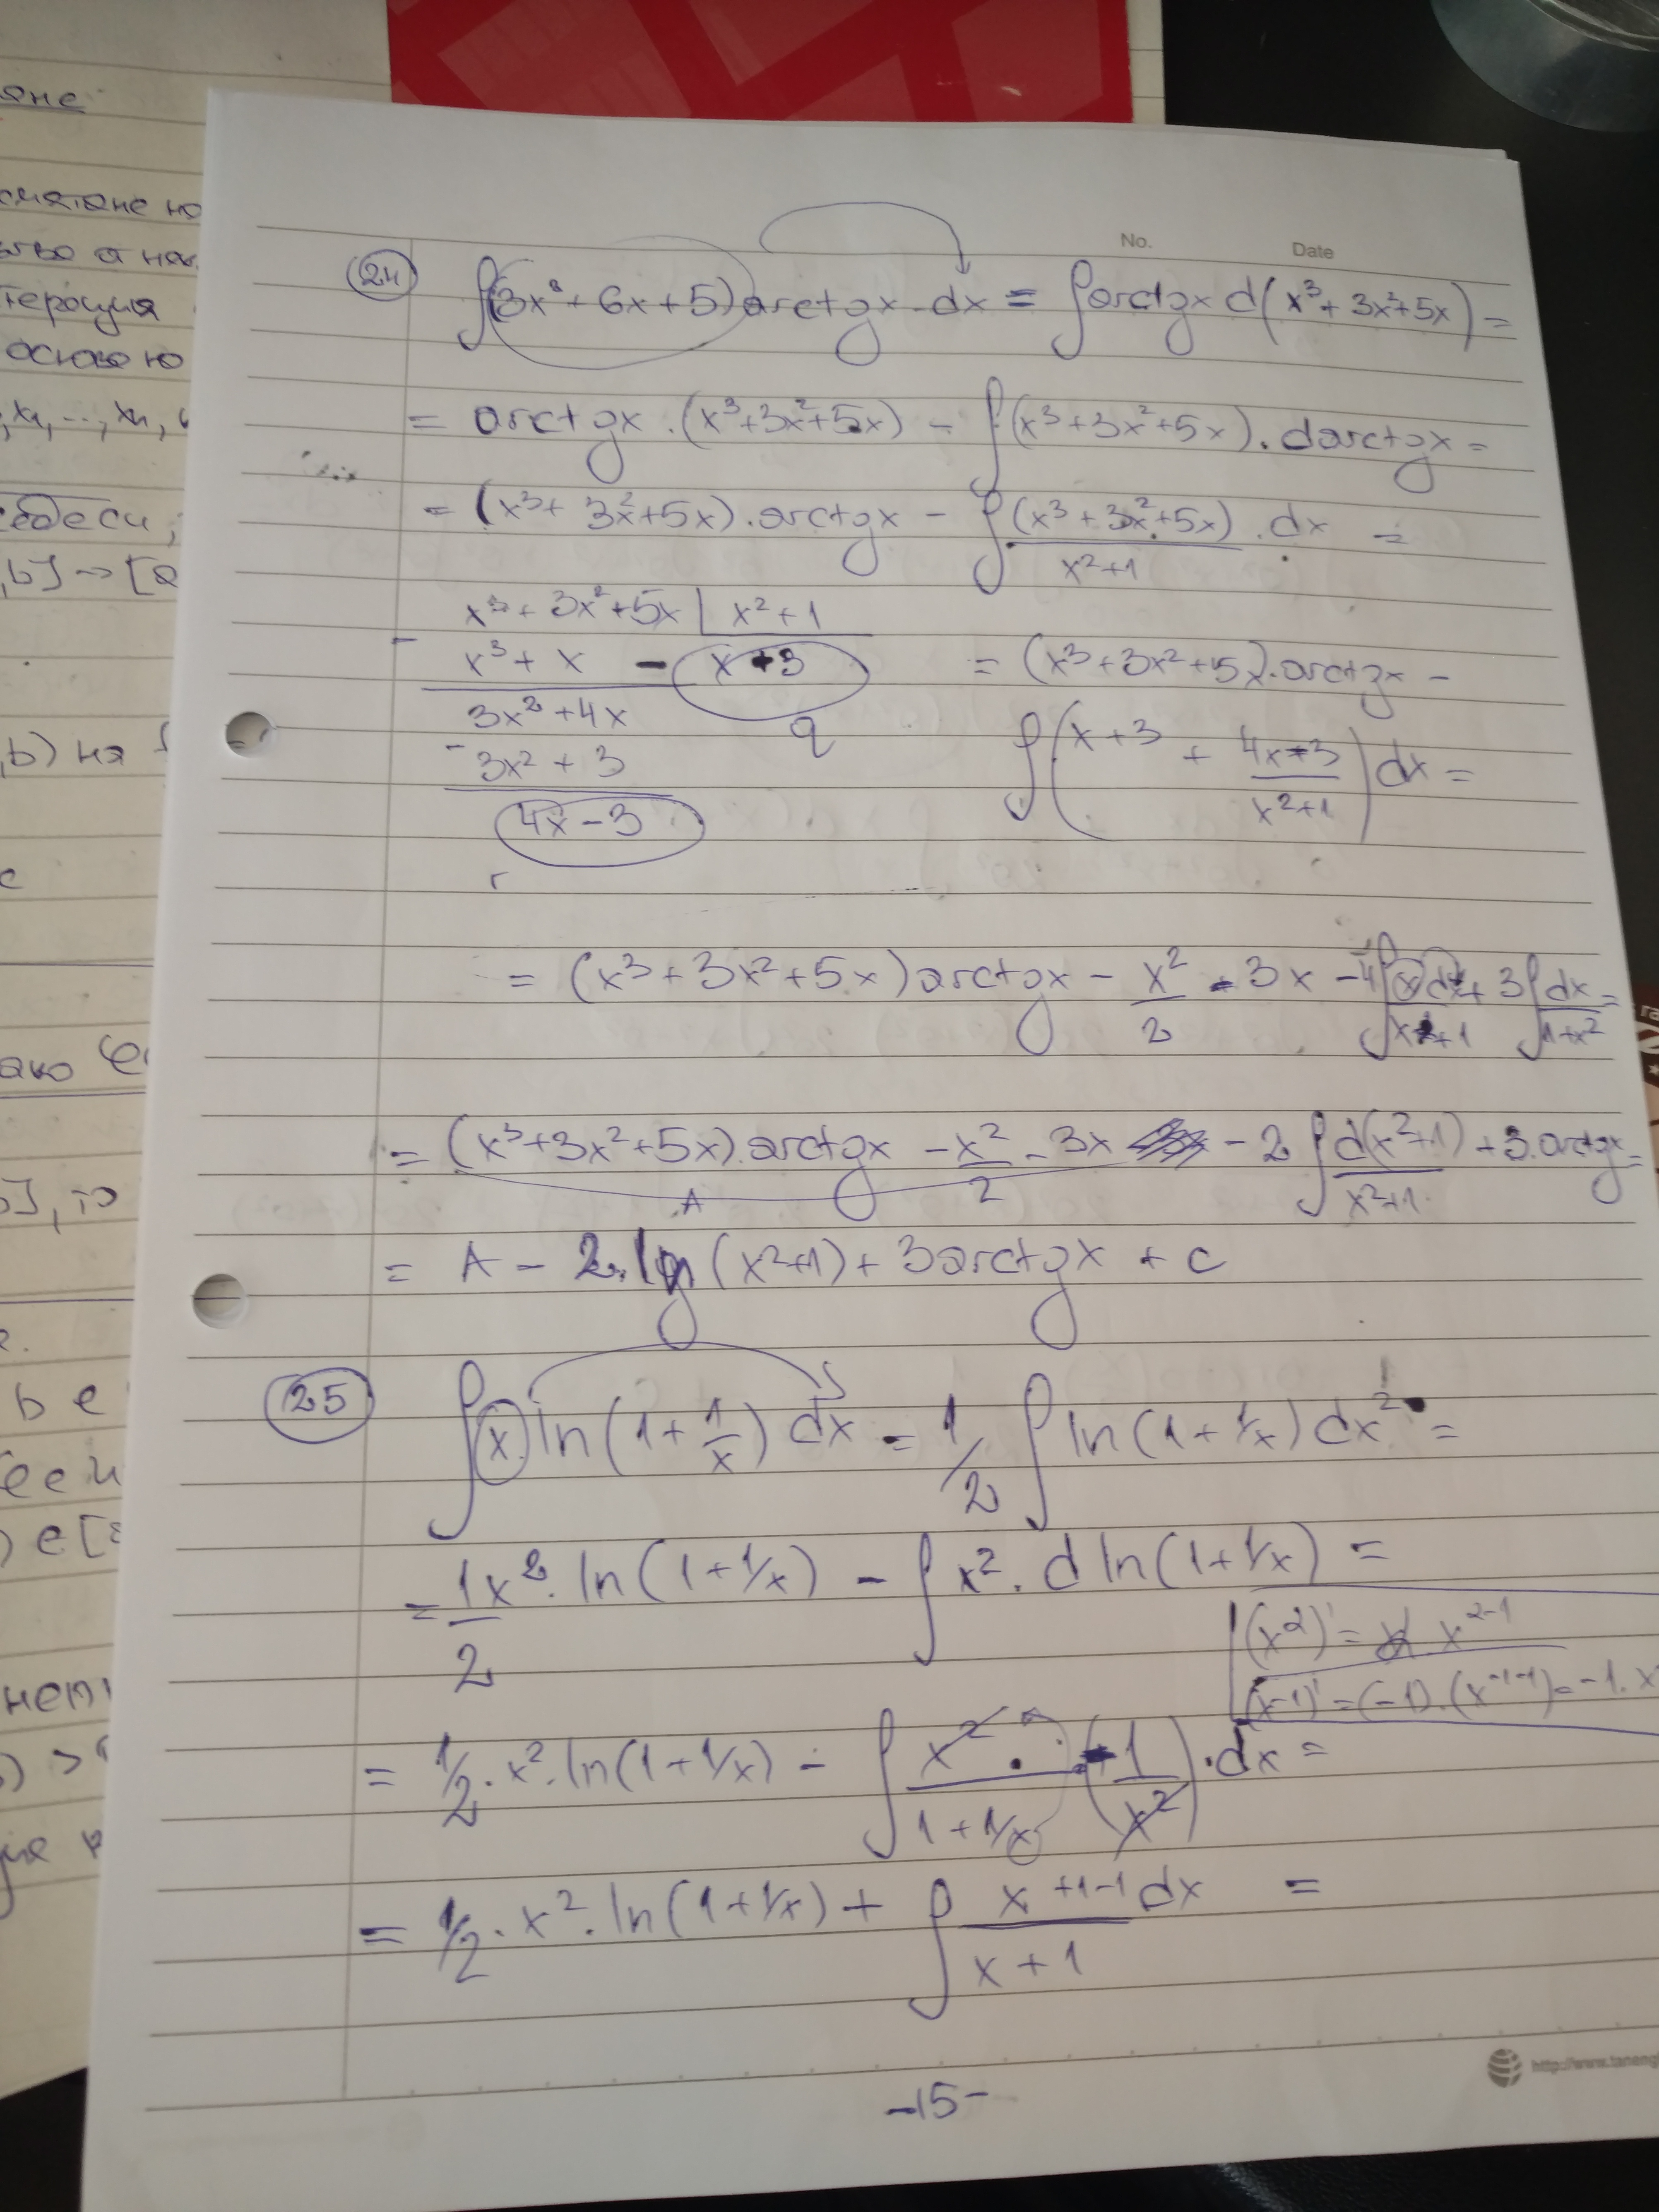 яне
смятане на
ство от няк
терация
основ но
,x₁,...,xₙ, и
,b] → [a
,b) на f
c
ако
b], то
b e
) e [a
) >
No. Date
24 ∫(3x²+6x+5)arctgx dx = ∫arctgx d(x³+3x²+5x) =
= arctgx.(x³+3x²+5x) - ∫(x³+3x²+5x).darctgx =
= (x³+3x²+5x).arctgx - ∫(x³+3x²+5x)/(x²+1) .dx =
x³+3x²+5x | x²+1
- x³+x - x+3 = (x³+3x²+5x).arctgx -
3x²+4x q ∫(x+3 + (4x-3)/(x²+1))dx =
- 3x²+3
4x-3
r
= (x³+3x²+5x)arctgx - x²/2 - 3x - 4∫xdx/(x²+1) + 3∫dx/(1+x²) =
= (x³+3x²+5x).arctgx - x²/2 - 3x - 2∫d(x²+1)/(x²+1) + 3.arctgx =
A
= A - 2.ln(x²+1) + 3arctgx + c
25 ∫x.ln(1+1/x)dx = 1/2 ∫ln(1+1/x)dx² =
= 1/2 x².ln(1+1/x) - ∫x².d ln(1+1/x) =
(x²)' = x²⁻¹
(x⁻¹)' = (-1).(x⁻¹⁻¹) = -1.x
= 1/2.x².ln(1+1/x) - ∫x²/(1+1/x).(-1/x²).dx =
= 1/2.x².ln(1+1/x) + ∫(x+1-1)dx/(x+1) =
http://www.taneng
-15-